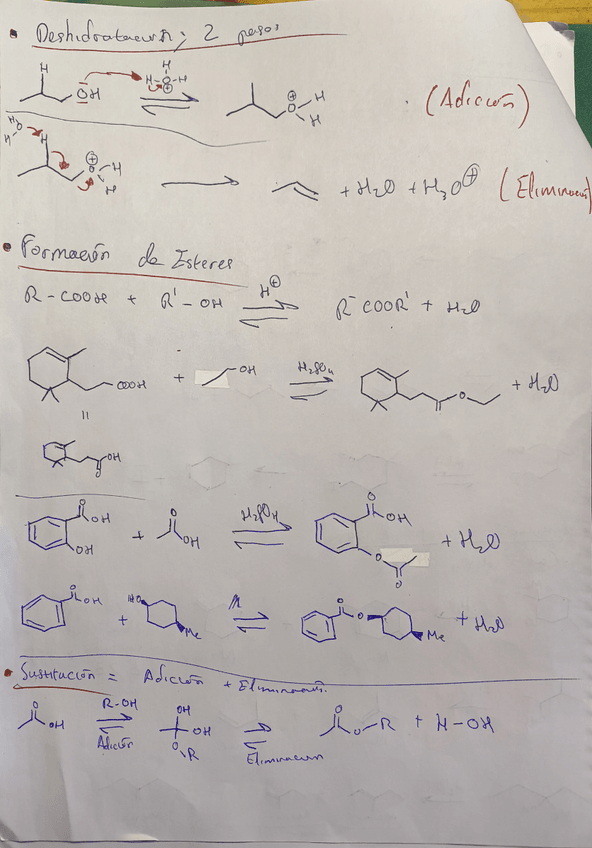 • Deshidratación; 2 pasos
H
OH
H-O-H
H
⊕
⇌
O
⊕
H
H
(Adición)
H₂O
H
O
⊕
H
H
→
+ H₂O + H₃O⊕
(Eliminación)
• Formación de Esteres
R-COOH + R'-OH
H⊕
⇌
R-COOR' + H₂O
COOH
+
OH
H₂SO₄
⇌
O
O
+ H₂O
=
OH
O
O
OH
OH
+
O
OH
H₂SO₄
⇌
O
OH
O
O
+ H₂O
O
OH
+
HO
Me
⇌
O
O
Me
+ H₂O
• Sustitución = Adición + Eliminación.
O
OH
R-OH
⇌
Adición
OH
OH
O
R
⇌
Eliminación
O
O-R
+ H-OH